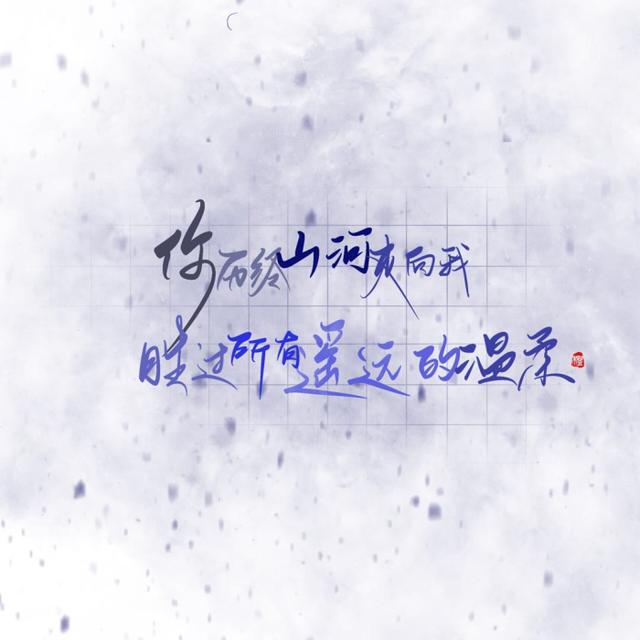 你历经山河爽向我
胜过所有遥远的温柔